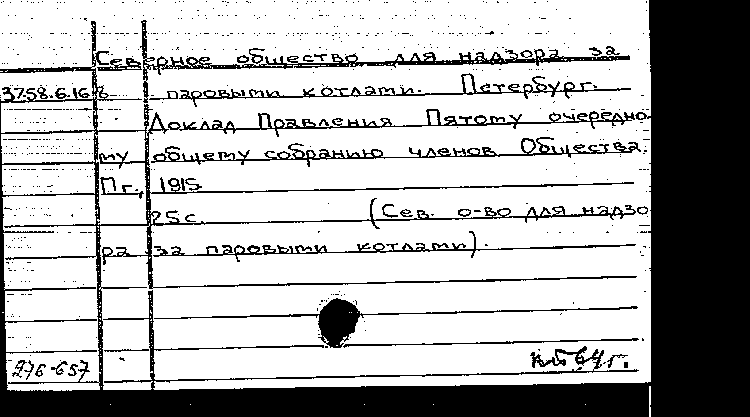 Северное общество для надзора за
37.58.6.168 паровыми котлами. Петербург.
Доклад Правления Пятому очередно-
му общему собранию членов Общества.
Пг., 1915
25 с. (Сев. о-во для надзо
ра за паровыми котлами).
276-657 64 г.